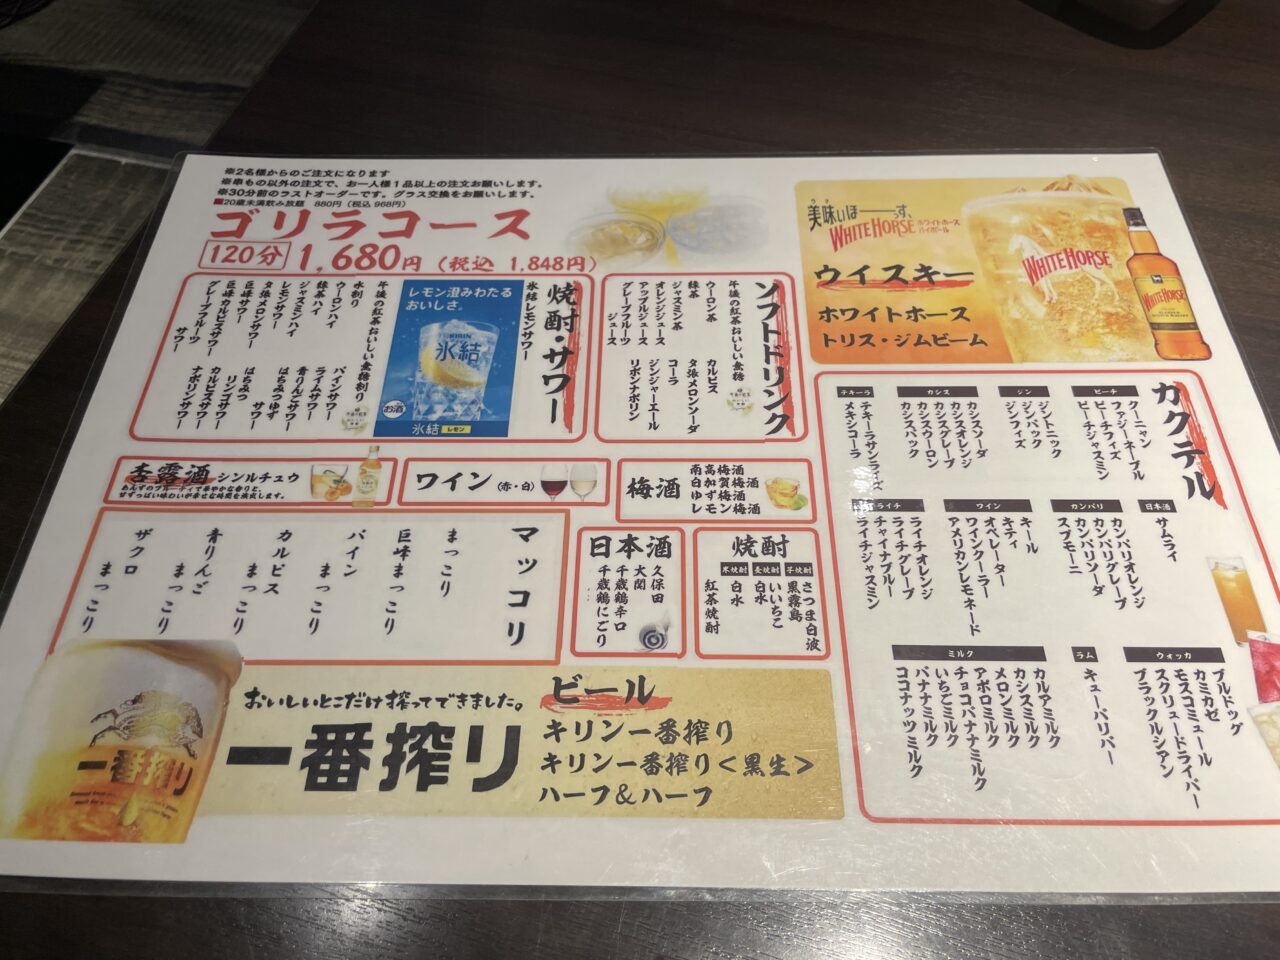 ※2名様からのご注文になります
※串もの以外の注文で、お一人様1品以上の注文お願いします。
※30分前のラストオーダーです。グラス交換をお願いします。
■20歳未満飲み放題 880円(税込 968円)
ゴリラコース
120分 1,680円(税込 1,848円)
焼酎・サワー
氷結レモンサワー
レモン澄みわたる
おいしさ。
KIRIN
氷結
お酒
氷結 レモン
午後の紅茶おいしい無糖割り
水割り
ウーロンハイ
緑茶ハイ
ジャスミンハイ
レモンサワー
夕張メロンサワー
巨峰サワー
巨峰カルピスサワー
グレープフルーツ
サワー
パインサワー
ライムサワー
青りんごサワー
はちみつゆず
サワー
はちみつ
リンゴサワー
カルピスサワー
ナポリンサワー
ソフトドリンク
午後の紅茶おいしい無糖
ウーロン茶
緑茶
ジャスミン茶
オレンジジュース
アップルジュース
グレープフルーツ
ジュース
カルピス
夕張メロンソーダ
コーラ
ジンジャーエール
リボンナポリン
美味いほーーっす、
WHITE HORSE
ホワイトホース
ハイボール
ウイスキー
ホワイトホース
トリス・ジムビーム
WHITE HORSE
WHITE HORSE
杏露酒 シンルチュウ
あんずのフルーティで華やかな香りと、
甘ずっぱい味わいが幸せな時間を演出します。
ワイン(赤・白)
梅酒
南高梅酒
白加賀梅酒
ゆず梅酒
レモン梅酒
マッコリ
まっこり
巨峰まっこり
パイン
まっこり
カルピス
まっこり
青りんご
まっこり
ザクロ
まっこり
日本酒
久保田
大関
千歳鶴辛口
千歳鶴にごり
焼酎
芋焼酎
さつま白波
黒霧島
麦焼酎
いいちこ
白水
米焼酎
白水
紅茶焼酎
カクテル
ピーチ
クーニャン
ファジーネーブル
ピーチフィズ
ピーチジャスミン
ジン
ジントニック
ジンバック
ジンフィズ
カシス
カシスソーダ
カシスオレンジ
カシスグレープ
カシスウーロン
カシスバック
テキーラ
テキーラサンライズ
メキシコーラ
日本酒
サムライ
カンパリ
カンパリオレンジ
カンパリグレープ
カンパリソーダ
スプモーニ
ワイン
キール
キティ
オペレーター
ワインクーラー
アメリカンレモネード
ライチ
ライチオレンジ
ライチグレープ
チャイナブルー
ライチジャスミン
ウォッカ
ブルドッグ
カミカゼ
モスコミュール
スクリュードライバー
ブラックルシアン
ラム
キューバリバー
ミルク
カルアミルク
カシスミルク
メロンミルク
アポロミルク
チョコバナナミルク
いちごミルク
バナナミルク
ココナッツミルク
おいしいとこだけ搾ってできました。
一番搾り
一番搾り
ビール
キリン一番搾り
キリン一番搾り<黒生>
ハーフ&ハーフ